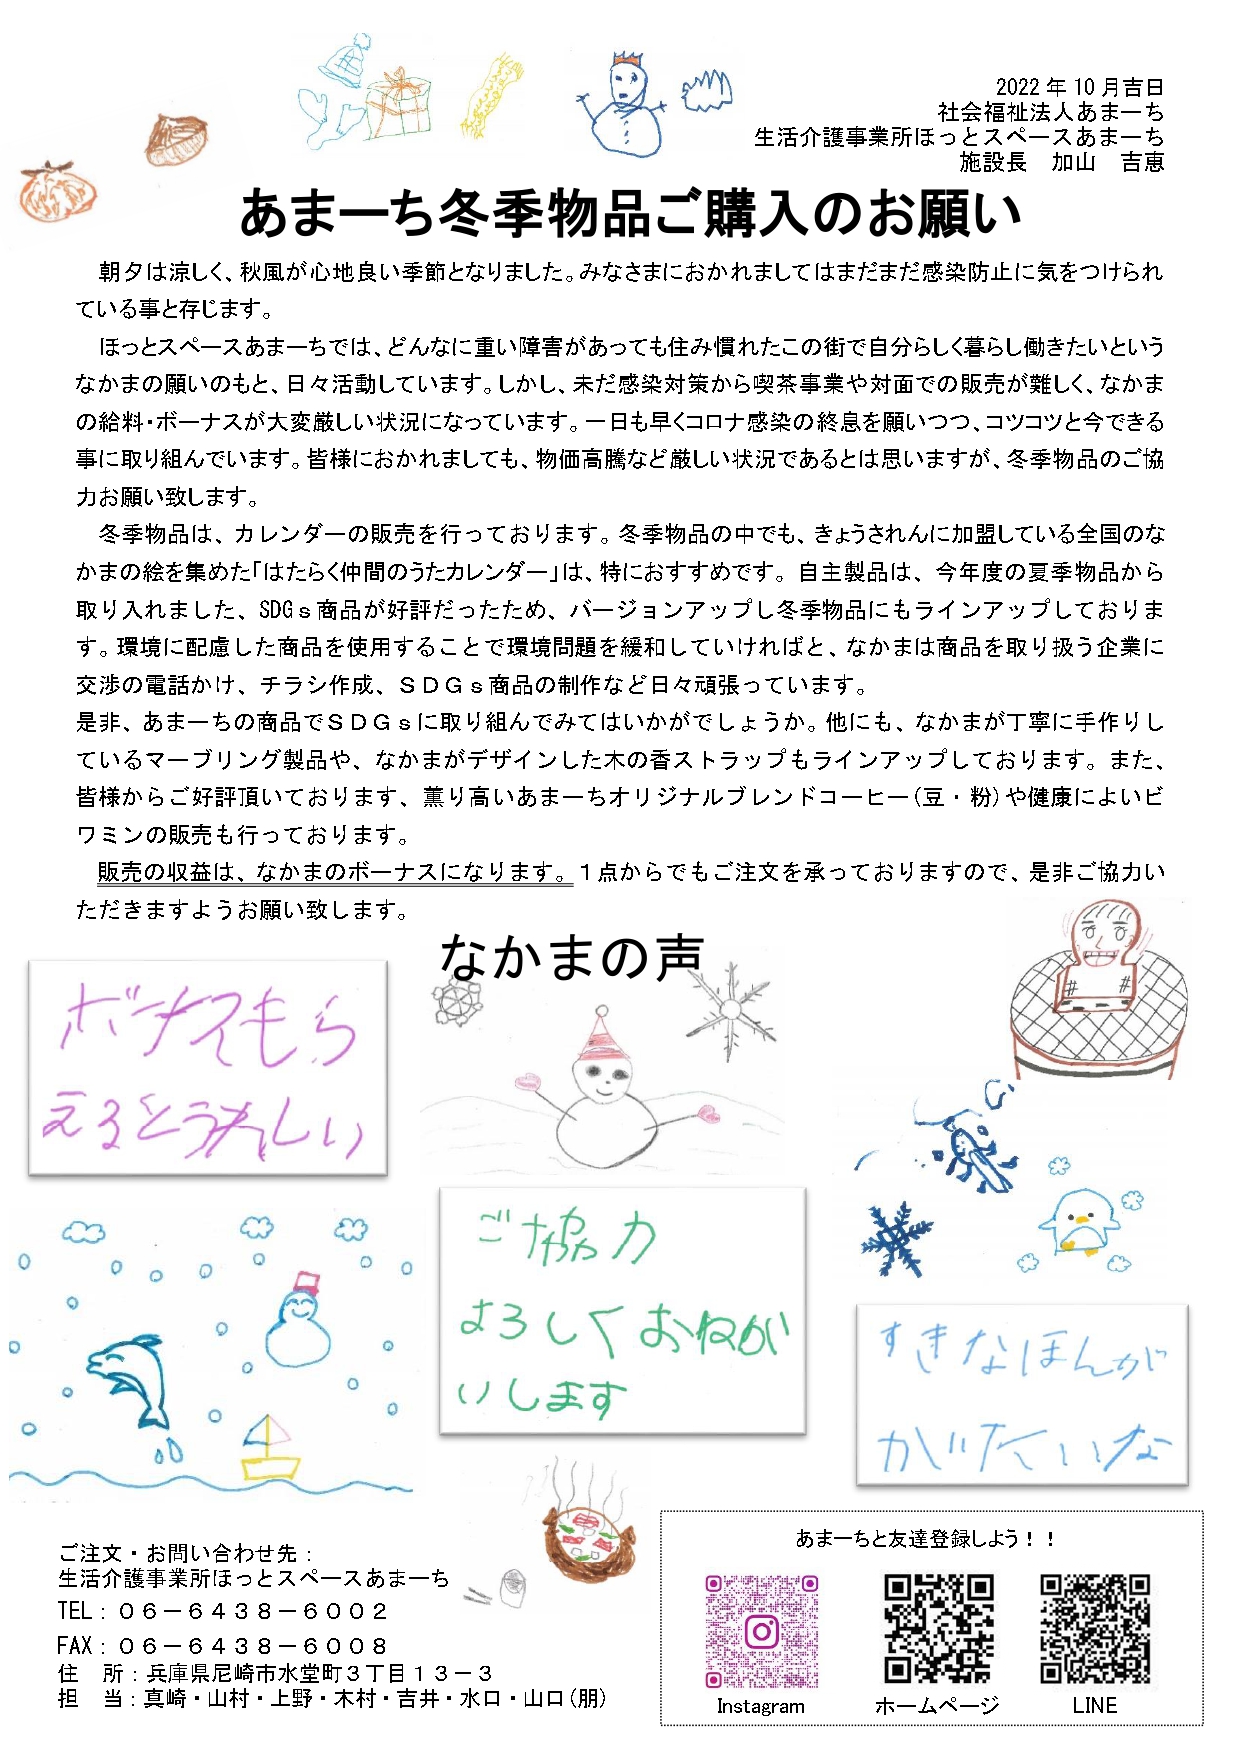 2022年10月吉日
社会福祉法人あまーち
生活介護事業所ほっとスペースあまーち
施設長　加山　吉恵
あまーち冬季物品ご購入のお願い
朝夕は涼しく、秋風が心地良い季節となりました。みなさまにおかれましてはまだまだ感染防止に気をつけられ
ている事と存じます。
ほっとスペースあまーちでは、どんなに重い障害があっても住み慣れたこの街で自分らしく暮らし働きたいという
なかまの願いのもと、日々活動しています。しかし、未だ感染対策から喫茶事業や対面での販売が難しく、なかま
の給料・ボーナスが大変厳しい状況になっています。一日も早くコロナ感染の終息を願いつつ、コツコツと今できる
事に取り組んでいます。皆様におかれましても、物価高騰など厳しい状況であるとは思いますが、冬季物品のご協
力お願い致します。
冬季物品は、カレンダーの販売を行っております。冬季物品の中でも、きょうされんに加盟している全国のな
かまの絵を集めた「はたらく仲間のうたカレンダー」は、特におすすめです。自主製品は、今年度の夏季物品から
取り入れました、SDGｓ商品が好評だったため、バージョンアップし冬季物品にもラインアップしておりま
す。環境に配慮した商品を使用することで環境問題を緩和していければと、なかまは商品を取り扱う企業に
交渉の電話かけ、チラシ作成、ＳＤＧｓ商品の制作など日々頑張っています。
是非、あまーちの商品でＳＤＧｓに取り組んでみてはいかがでしょうか。他にも、なかまが丁寧に手作りし
ているマーブリング製品や、なかまがデザインした木の香ストラップもラインアップしております。また、
皆様からご好評頂いております、薫り高いあまーちオリジナルブレンドコーヒー（豆・粉）や健康によいビ
ワミンの販売も行っております。
販売の収益は、なかまのボーナスになります。１点からでもご注文を承っておりますので、是非ご協力い
ただきますようお願い致します。
なかまの声
ボーナスもら
えるとうれしい
ご協力
よろしくおねがい
いします
すきなほんが
かいたいな
ご注文・お問い合わせ先：
生活介護事業所ほっとスペースあまーち
TEL：０６－６４３８－６００２
FAX：０６－６４３８－６００８
住　所：兵庫県尼崎市水堂町３丁目１３－３
担　当：真崎・山村・上野・木村・吉井・水口・山口（朋）
あまーちと友達登録しよう！！
Instagram
ホームページ
LINE